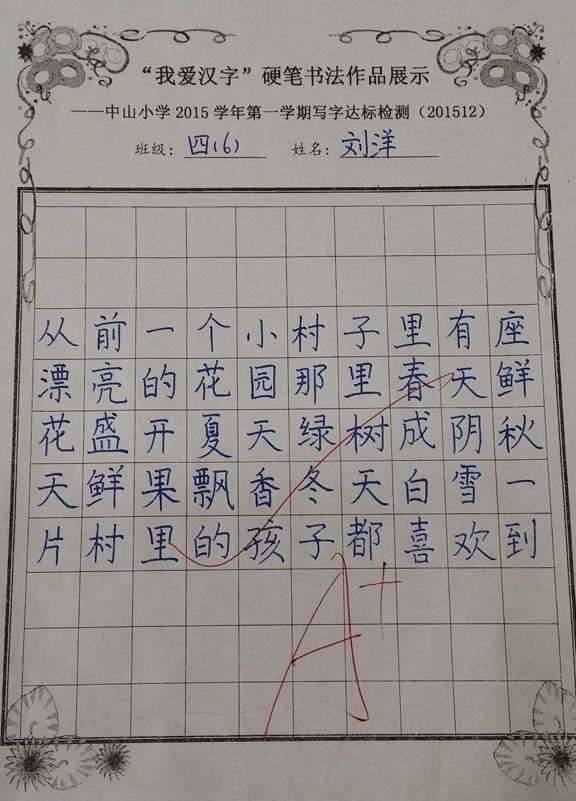 “我爱汉字”硬笔书法作品展示
——中山小学2015学年第一学期写字达标检测（201512）
班级：四(6) 姓名：刘洋
从前一个小村子里有座
漂亮的花园那里春天鲜
花盛开夏天绿树成阴秋
天鲜果飘香冬天白雪一
片村里的孩子都喜欢到
A+